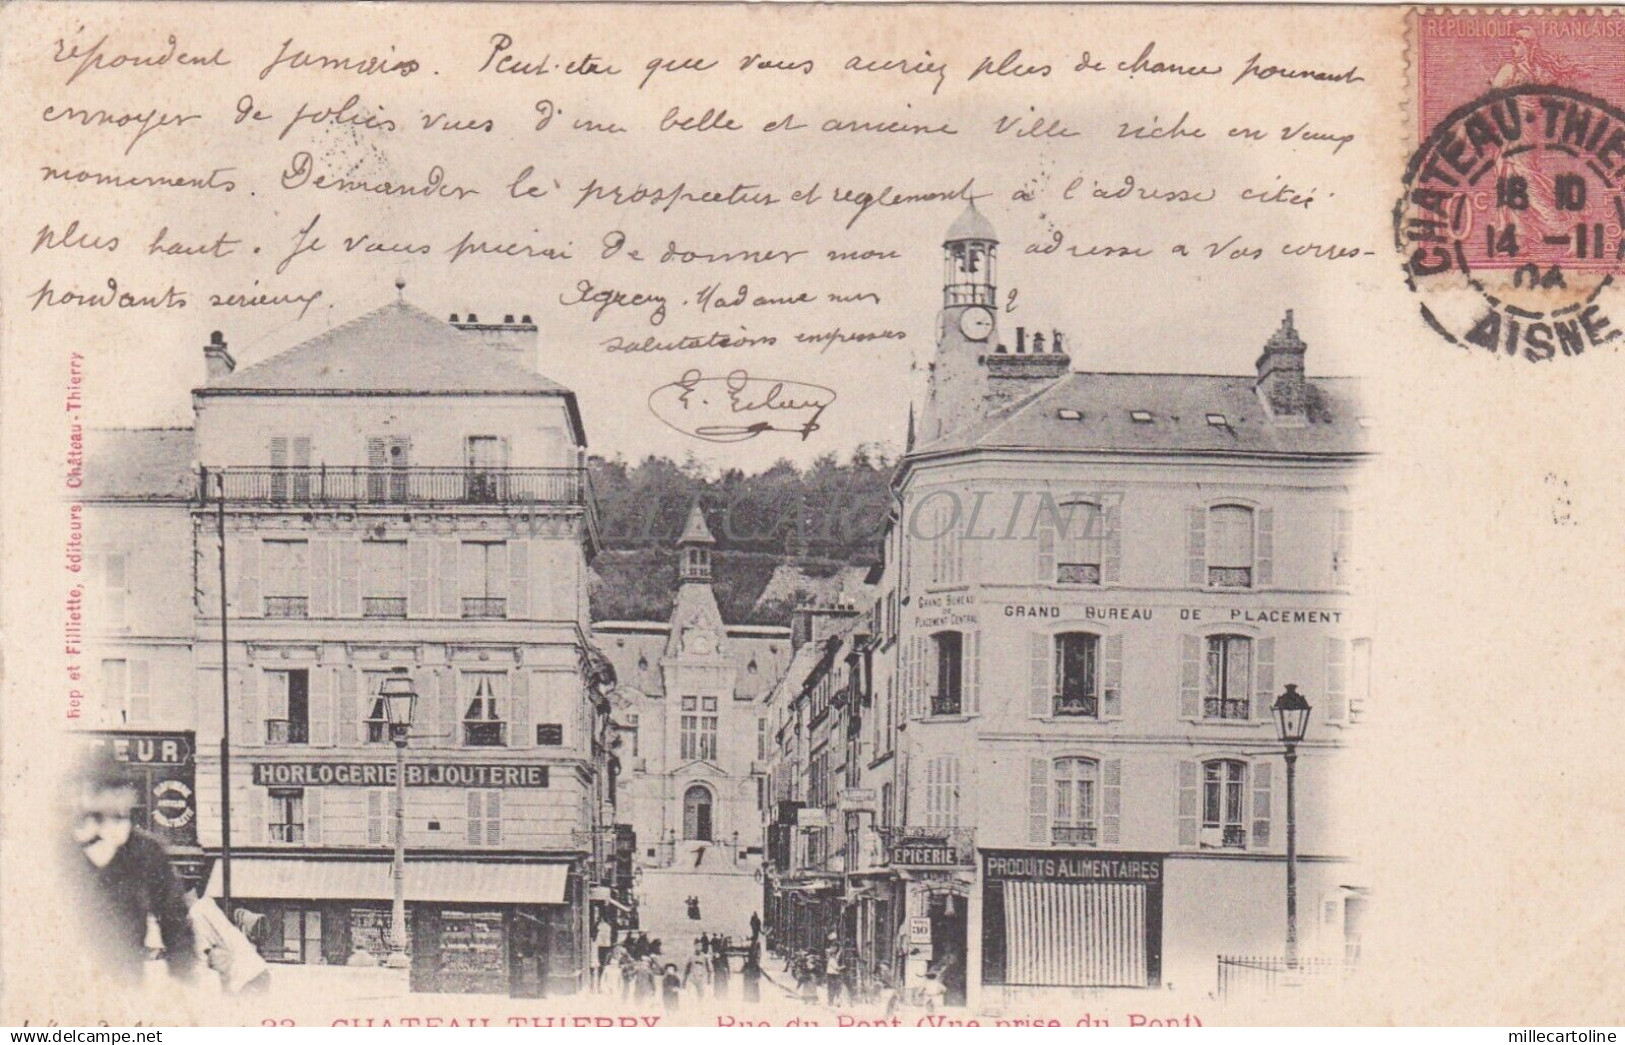 répondent jamais. Peut-etre que vous auriez plus de chance pouvant
envoyer de jolies vues d'une belle et ancienne Ville riche en vieux
monuments. Demander le prospectus et reglement à l'adresse citée
plus haut. Je vous prierai de donner mon adresse a vos corres-
pondants serieux. Agreez Madame mes
salutations empressées
E.
REPUBLIQUE FRANCAISE
10 C
POSTES
CHATEAU-THIERRY
18 10
14 -11
04
AISNE
1
2
Rep et Filliette, éditeurs Château-Thierry
MILLECARTOLINE
GRAND BUREAU
DE
PLACEMENT CENTRAL
GRAND BUREAU DE PLACEMENT
TEUR
HORLOGERIE BIJOUTERIE
EPICERIE
PRODUITS ALIMENTAIRES
30
33. CHATEAU-THIERRY — Rue du Pont (Vue prise du Pont)
millecartoline